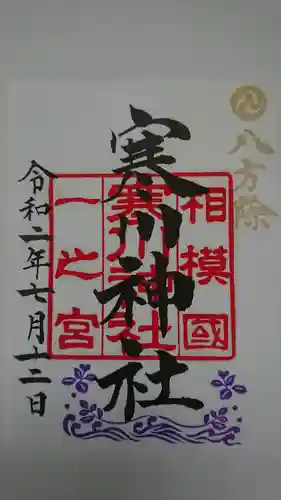 八方除
相模國
寒川神社
一之宮
寒川神社
令和二年七月十二日